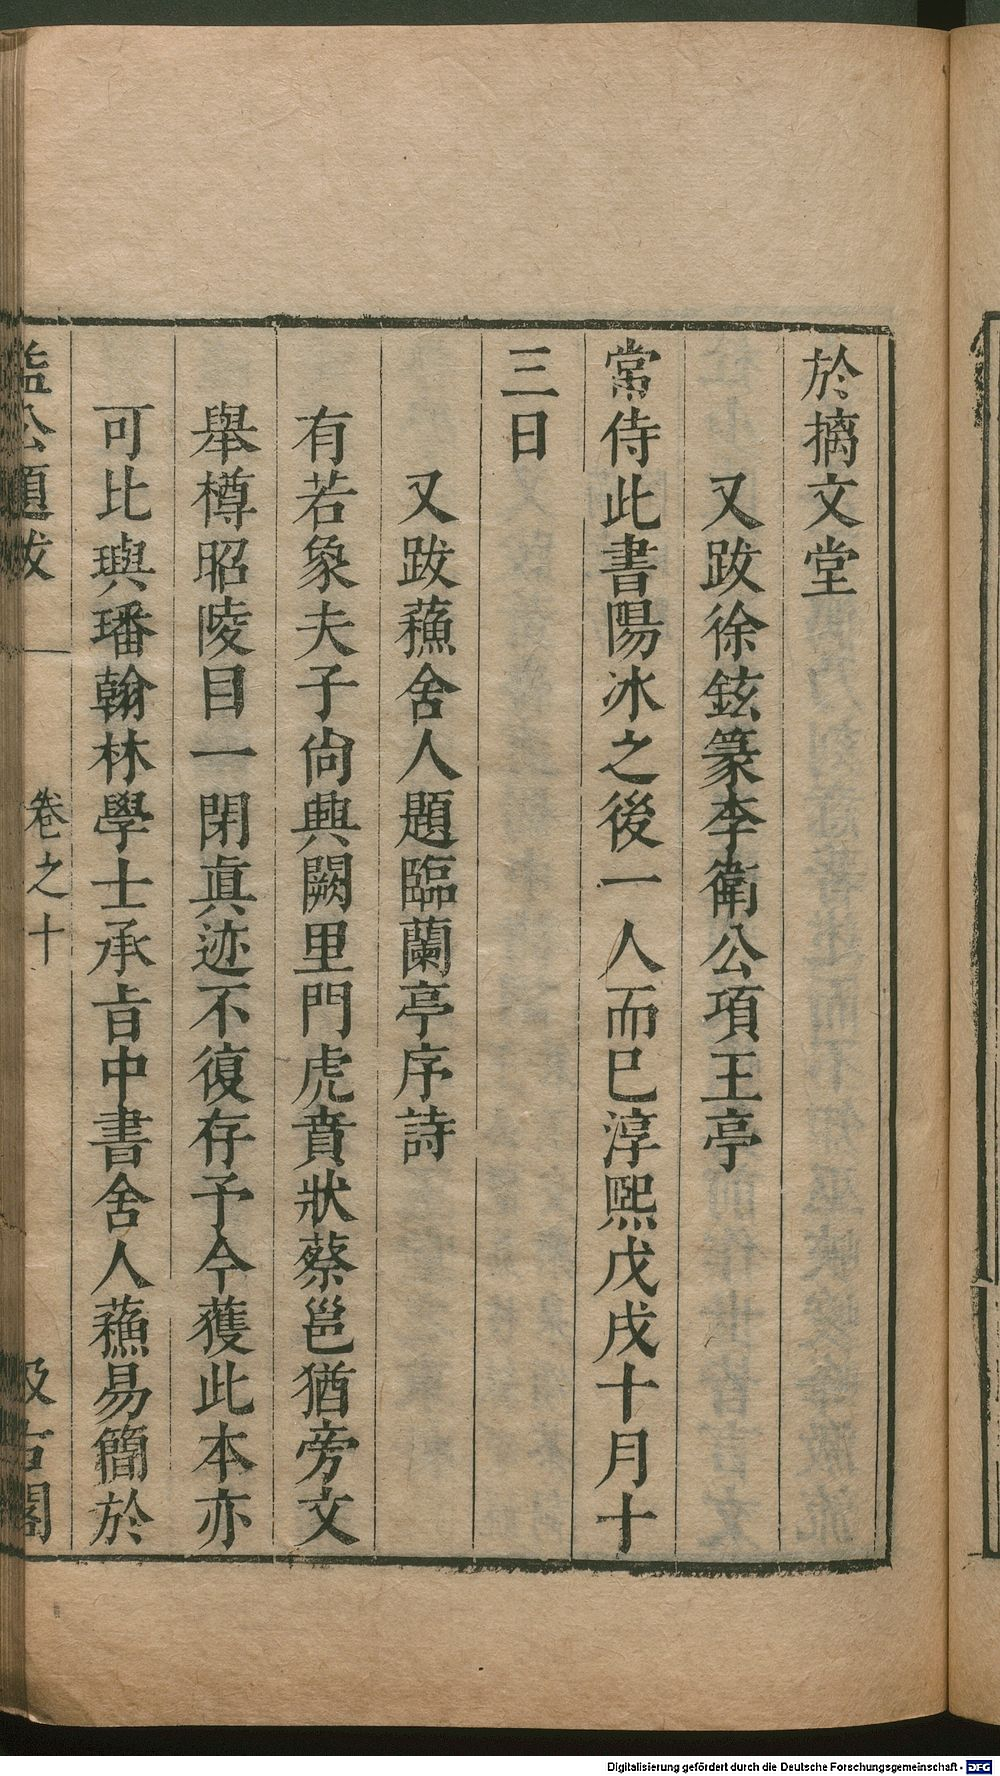 於摛文堂
又跋徐鉉篆李衛公項王亭
常侍此書陽冰之後一人而已淳熙戊戌十月十
三日
又跋蘓舍人題臨蘭亭序詩
有若象夫子尙興闕里門虎賁狀蔡邕猶旁文
舉樽昭陵目一閉眞迹不復存予今獲此本亦
可比璵璠翰林學士承㫖中書舍人蘓易簡於
益公題跋 卷之十 汲古閣
Digitalisierung gefördert durch die Deutsche Forschungsgemeinschaft - DFG